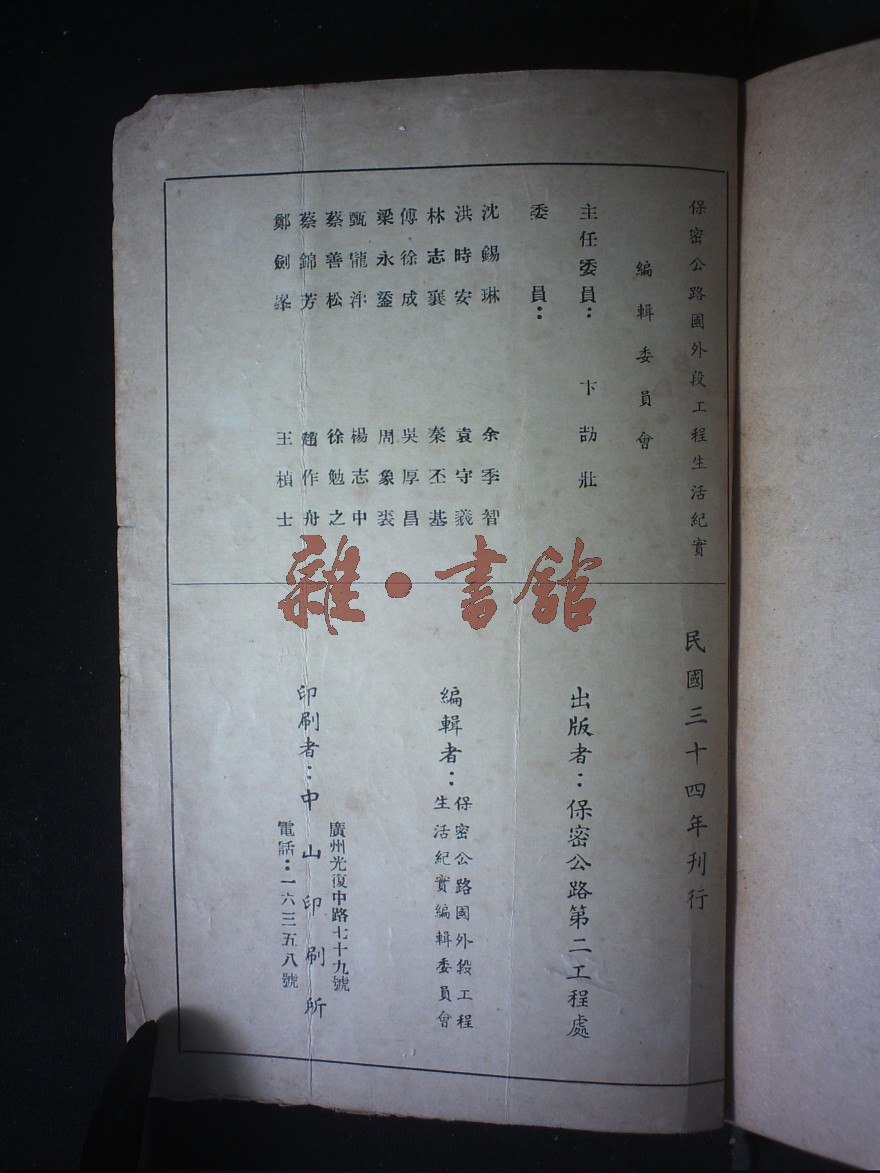 保密公路國外段工程生活紀實
編輯委員會
主任委員： 卞劼壯
委員：
沈錫琳 余季智
洪時安 袁守羲
林志襄 秦丕基
傅徐成 吳厚昌
梁永鎏 周象裘
甄寵洋 楊志中
蔡善松 徐勉之
蔡錦芳 趙作舟
鄭劍峯 王楨士
民國三十四年刊行
出版者：保密公路第二工程處
編輯者：保密公路國外段工程
生活紀實編輯委員會
印刷者：中山印刷所
廣州光復中路七十九號
電話：一六三五八號
雜·書館